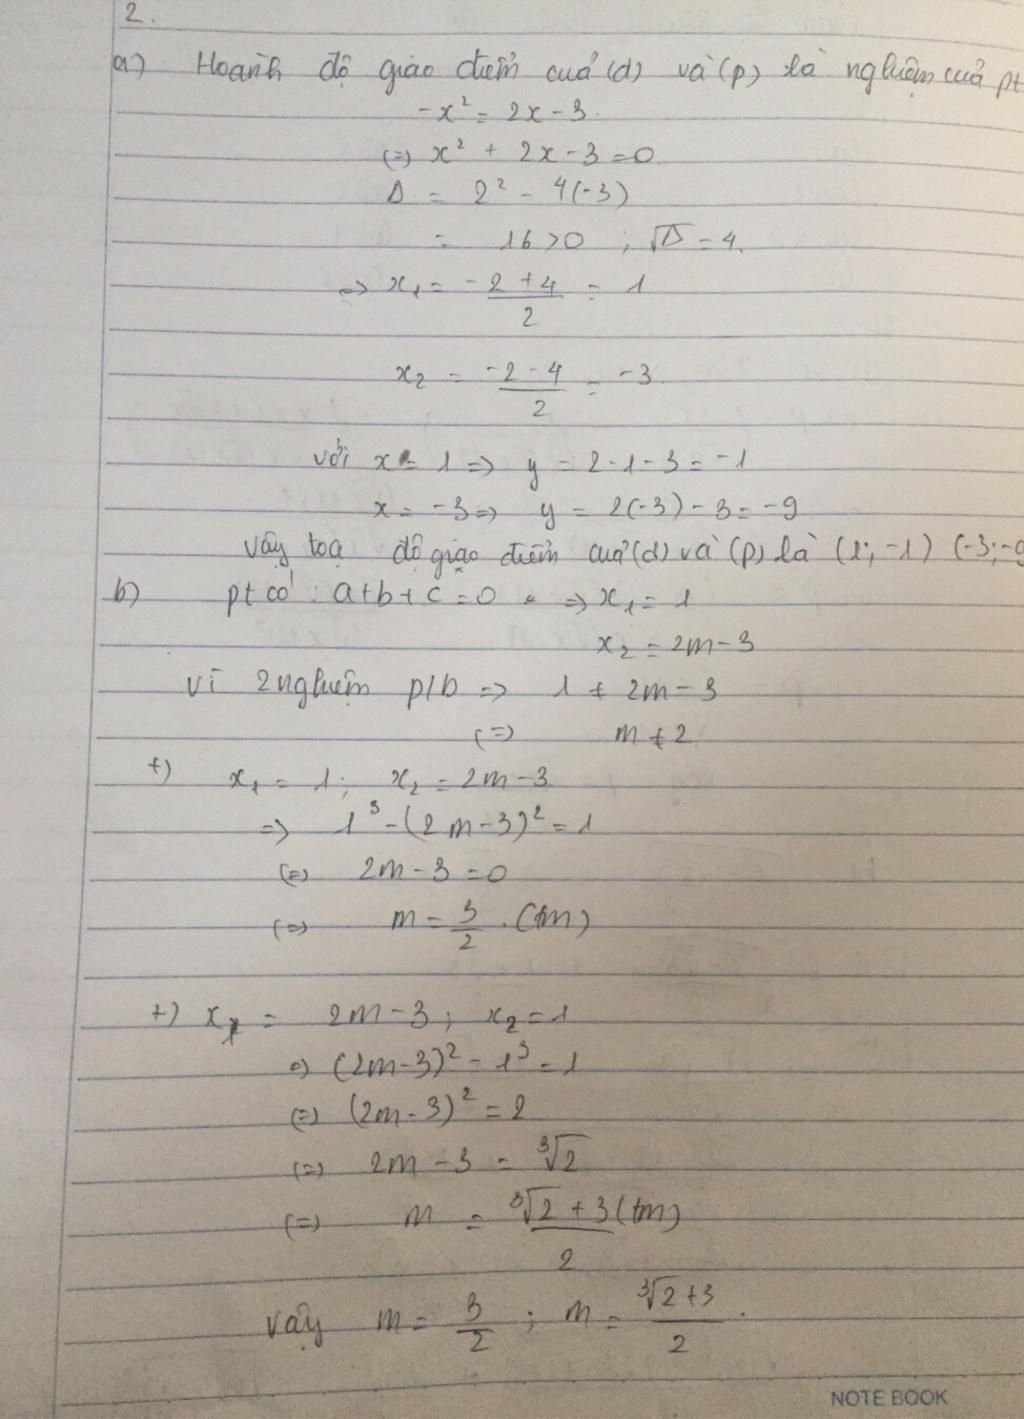 2.
a) Hoành độ giao điểm của (d) và (p) là nghiệm của pt
-x² = 2x - 3.
(=) x² + 2x - 3 = 0
Δ = 2² - 4(-3)
= 16 > 0 ; √Δ = 4.
=> x₁ = (-2 + 4)/2 = 1
x₂ = (-2 - 4)/2 = -3.
với x = 1 => y = 2·1 - 3 = -1
x = -3 => y = 2(-3) - 3 = -9
vậy toạ độ giao điểm của (d) và (p) là (1; -1) (-3; -9
b) pt có : a+b+c = 0 => x₁ = 1
x₂ = 2m - 3
vì 2 nghiệm p/b => 1 ≠ 2m - 3
(=) m ≠ 2
+) x₁ = 1; x₂ = 2m - 3
=> 1³ - (2m - 3)² = 1
(=) 2m - 3 = 0
(=) m = 3/2 . (tm)
+) x₁ = 2m - 3; x₂ = 1
=> (2m - 3)² - 1³ = 1
(=) (2m - 3)² = 2
(=) 2m - 3 = ³√2
(=) m = (³√2 + 3)/2 (tm)
vậy m = 3/2 ; m = (³√2 + 3)/2 .
NOTE BOOK